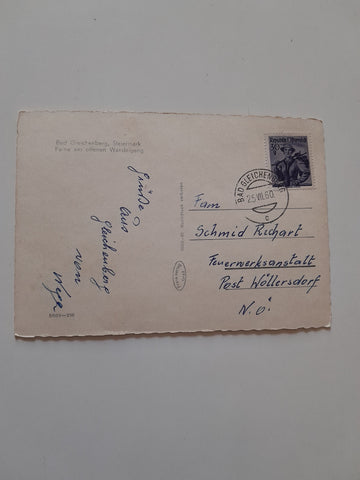 Bad Gleichenberg, Steiermark
Partie am offenen Wandelgang
Grüße
aus
Gleichenberg
von
BAD GLEICHENBERG
25.VII.60
c
Republik Österreich
Fam
Schmid Richart
Feuerwerksanstalt
Post Wöllersdorf
N.Ö.